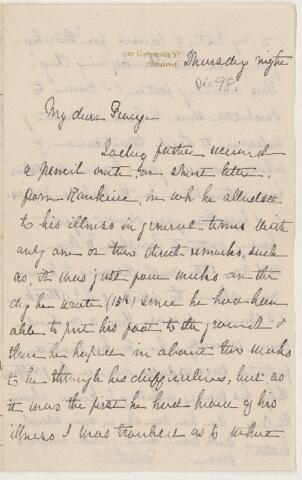 University St
Montreal
Thursday night
Dec 98.
My dear George
Today father received
a pencil note or short letter,
from Rankine, in wh he alluded
to his illness in general terms with
only one or two direct remarks, such
as, it was just four weeks on the
day he wrote (15th) since he had been
able to put his foot to the ground &
there he hoped in about two weeks
to be through his difficulties, but as
it was the first he had heard of his
illness I was troubled as to what